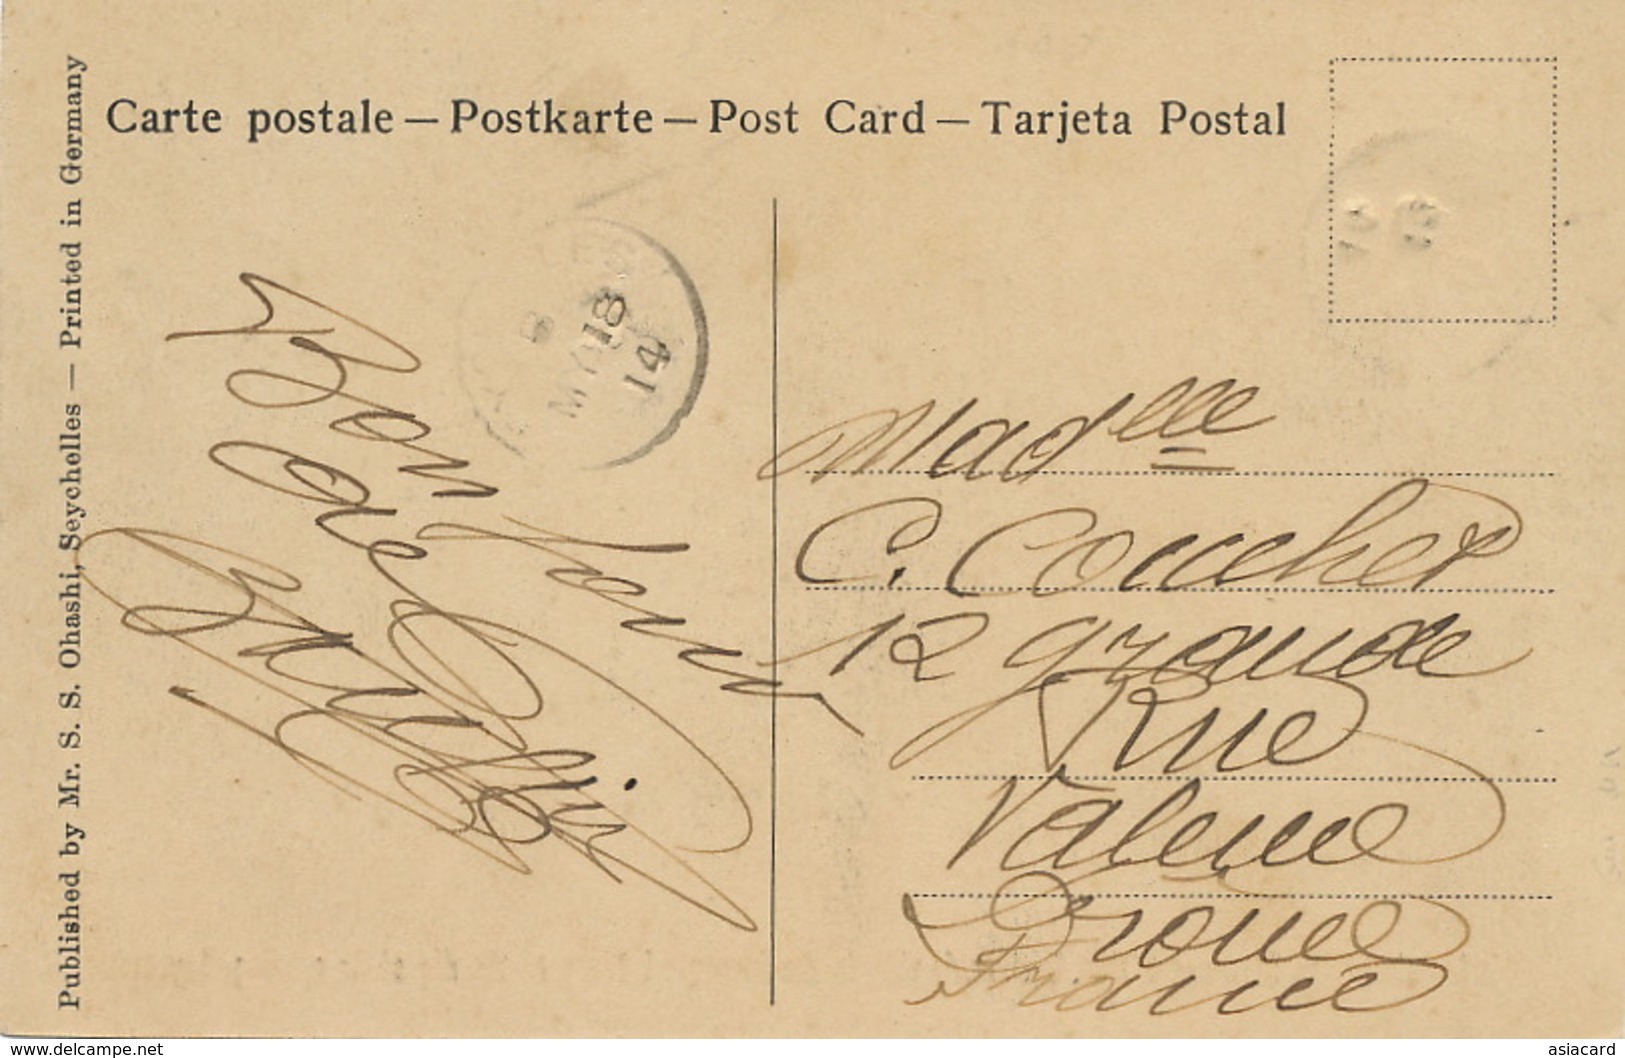 Carte postale — Postkarte — Post Card — Tarjeta Postal
Published by Mr. S. S. Ohashi, Seychelles — Printed in Germany
B
MY 18
14
Bonjour
de
Madelle
C. Coucher
12 grande
Rue
Valence
Drome
France
www.delcampe.net
asiacard